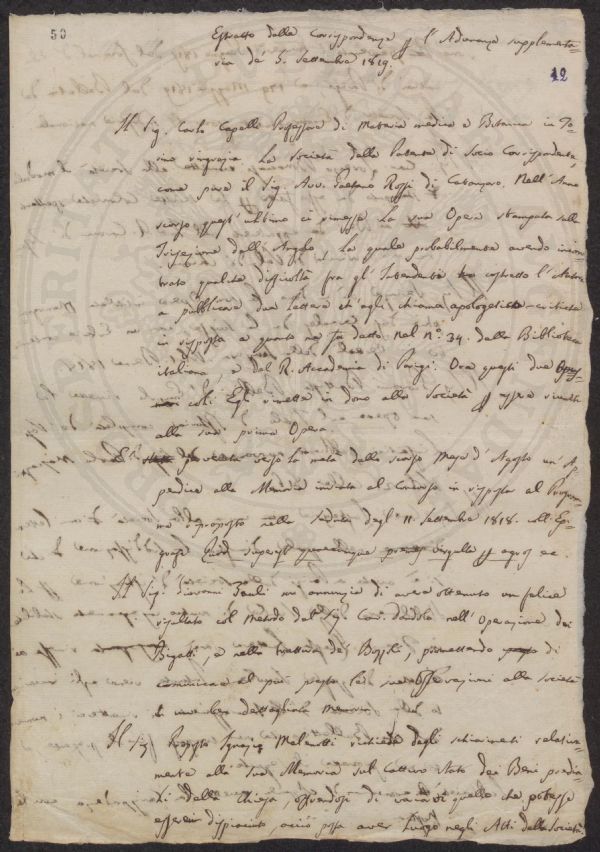 50
Estratto della Corrispondenza p l'Adunanza supplementa-
ria de' 5. Settembre 1819.
42
Il Sig. Carlo Capelli Professore di Materia medica e Botanica in To-
rino ringrazia la Società della Patente di Socio Corrispondente,
come pure il Sig. Avv. Gaetano Rossi di Catanzaro. Nell'Anno
scorso quest'ultimo ci rimesse la sua Opera stampata sulla
Trisezione dell'Angolo, la quale probabilmente avendo incon-
trato qualche difficoltà fra gl'Intendenti ha costretto l'Autore
a pubblicare due Lettere ch'egli chiama apologetico-critiche
in risposta a quanto ne fu detto nel n.º 34. della Biblioteca
italiana e dal R. Accademia di Parigi. Ora questi due Opus-
coli Egli rimette in dono alla Società p essere riuniti
alla sua prima Opera.
verso la metà dello scorso Mese d'Agosto un'Ap-
pendice alla Memoria inviata al Concorso in risposta al Program-
ma proposto nella Seduta degl'11. Settembre 1818. coll'Epi-
grafe Quod superest quaecunque premes virgulta p agros ec.
Il Sig. Giovanni Pauli mi annunzia di avere ottenuto un felice
risultato col metodo del Sig. Con. Dandolo nell'Operazione dei
Bigatti, e nella trattura de' Bozzoli, promettendo di
comunicare al più presto le sue osservazioni alla Società
in una ben dettagliata Memoria.
Il Sig. Proposto Ignazio Malenotti richiede degli schiarimenti relativa-
mente alla sua Memoria sul Cattivo Stato dei Beni predia-
li della Chiesa, offrendosi di variare quello che potesse
essere dispiaciuto, acciò possa aver luogo negli Atti della Società.